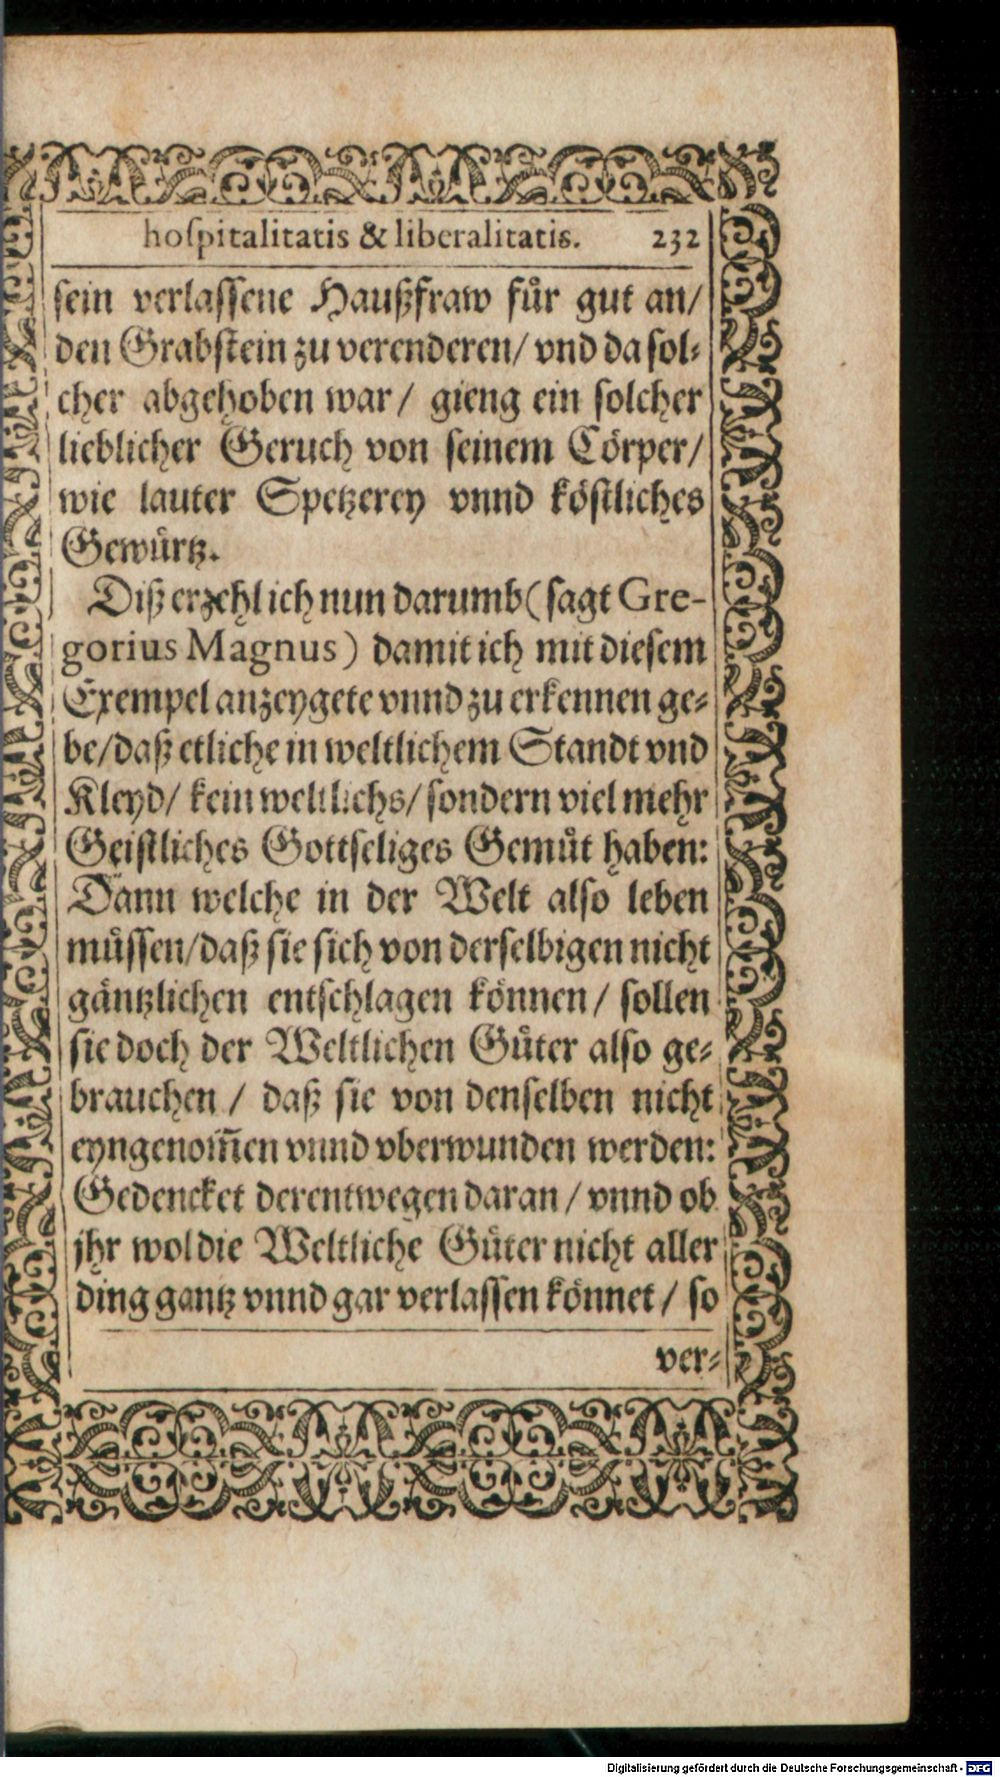 hoſpitalitatis & liberalitatis. 232
ſein verlaſſene Haußfraw fuͤr gut an/
den Grabſtein zu verenderen/ vnd da ſol⸗
cher abgehoben war/ gieng ein ſolcher
lieblicher Geruch von ſeinem Coͤrper/
wie lauter Spetzerey vnnd koͤſtliches
Gewuͤrtz.
Diß erzehl ich nun darumb (ſagt Gre-
gorius Magnus) damit ich mit dieſem
Exempel anzeygete vnnd zu erkennen ge⸗
be/ daß etliche in weltlichem Standt vnd
Kleyd/ kein weltlichs/ ſondern viel mehr
Geiſtliches Gottſeliges Gemuͤt haben:
Dann welche in der Welt alſo leben
muͤſſen/ daß ſie ſich von derſelbigen nicht
gaͤntzlichen entſchlagen koͤnnen/ ſollen
ſie doch der Weltlichen Guͤter alſo ge⸗
brauchen/ daß ſie von denſelben nicht
eyngenom̃en vnnd vberwunden werden:
Gedencket derentwegen daran/ vnnd ob
jhr wol die Weltliche Guͤter nicht aller
ding gantz vnnd gar verlaſſen koͤnnet/ ſo
ver⸗
Digitalisierung gefördert durch die Deutsche Forschungsgemeinschaft - DFG